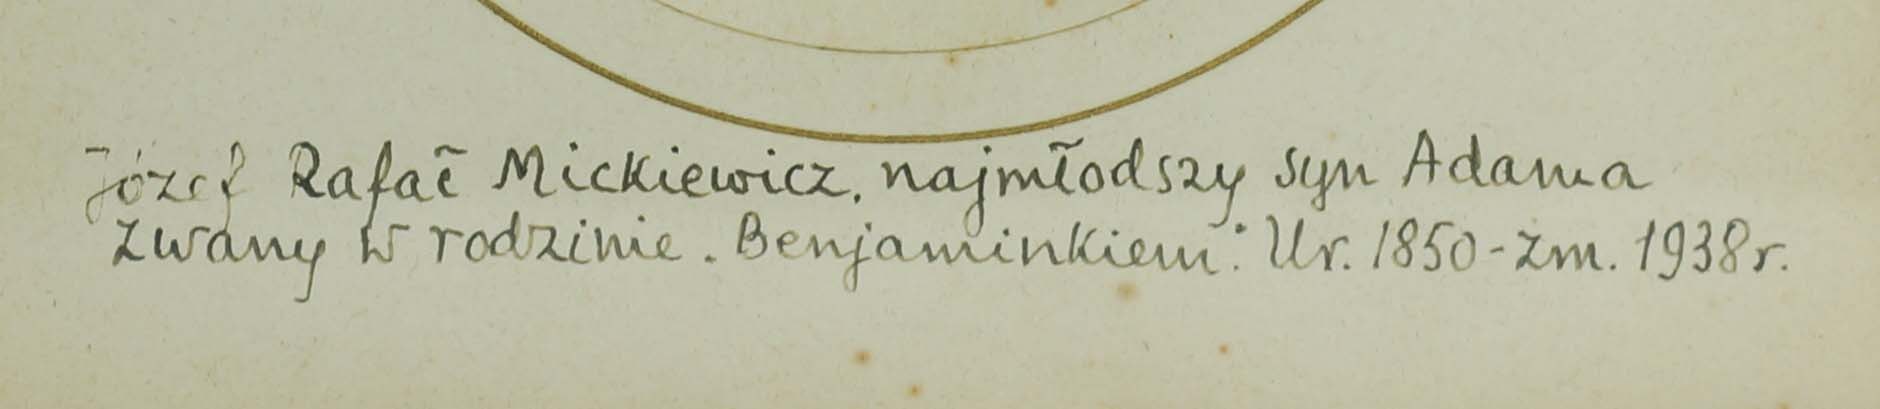 Józef Rafał Mickiewicz, najmłodszy syn Adama
zwany w rodzinie "Benjaminkiem". Ur. 1850 - zm. 1938 r.